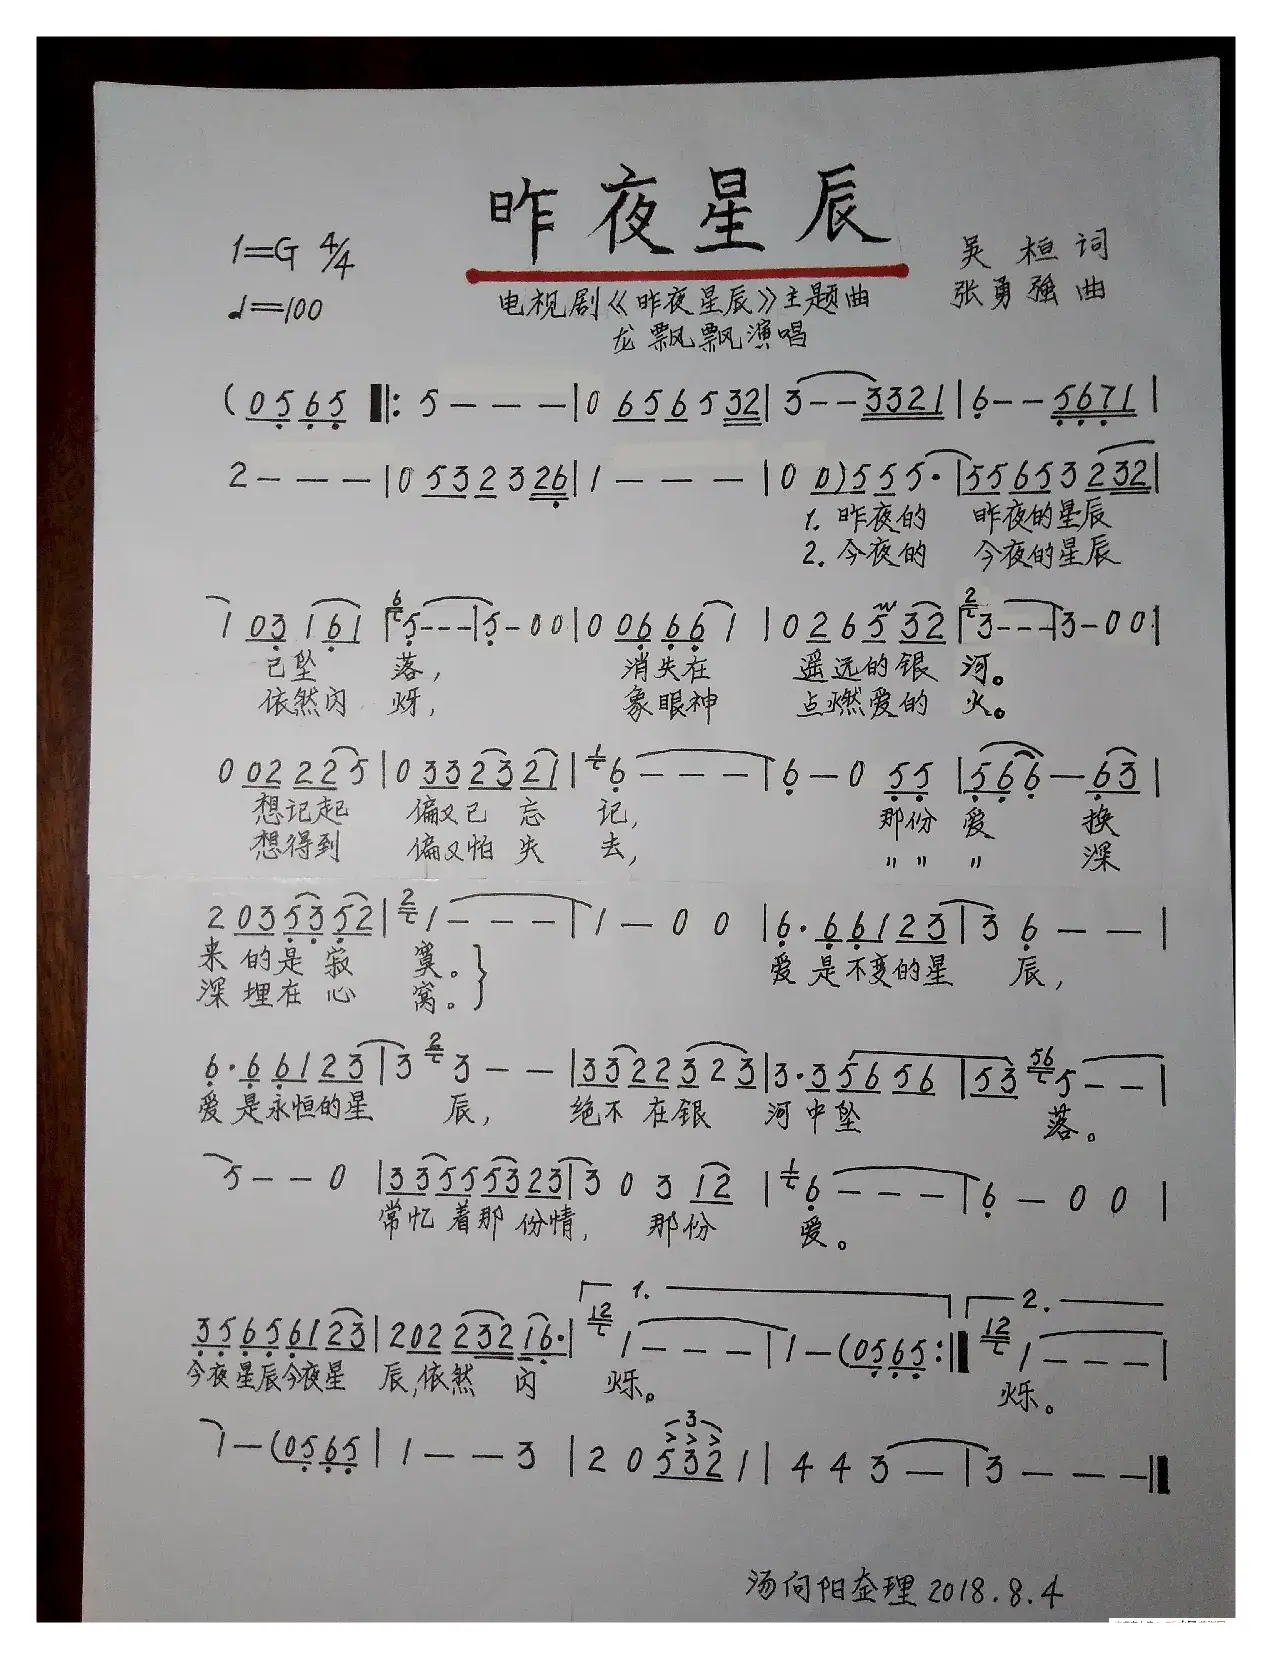 昨夜星辰
1=G 4/4
♩=100
吴桓词
张勇强曲
电视剧《昨夜星辰》主题曲
龙飘飘演唱
(0565 ‖: 5 — — — | 0 65 6 5 32 | 3 — — 3321 | 6 — — 5671 |
2 — — — | 0 53 2 3 26 | 1 — — — | 0 0) 5 5 5· | 55 65 3 232 |
1. 昨夜的 昨夜的星辰
2. 今夜的 今夜的星辰
1 03 1 61 | 6 5 — — — | 5 — 0 0 | 0 06 6 6 1 | 0 2 6 5 32 | 2 3 — — — | 3 — 0 0 |
已坠 落, 消失在 遥远的银 河。
依然闪 烁, 象眼神 点燃爱的 火。
0 02 2 2 5 | 0 33 23 21 | 1 6 — — — | 6 — 0 55 | 5 6 6 — 63 |
想记起 偏又已 忘 记, 那份 爱 换
想得到 偏又怕 失 去, 〃 〃 〃 深
2 03 53 52 | 2 1 — — — | 1 — 0 0 | 6· 6 61 23 | 3 6 — — |
来 的是 寂 寞。 爱 是不变的星 辰,
深 埋在 心 窝。
6· 6 61 23 | 3 2 3 — — | 33 22 3 2 3 | 3· 3 56 56 | 53 56 5 — — |
爱 是永恒的星 辰, 绝不 在银 河中坠 落。
5 — — 0 | 33 55 53 23 | 3 0 3 12 | 1 6 — — — | 6 — 0 0 |
常忆 着那 份情, 那份 爱。
1. 2.
35 65 61 23 | 2 02 232 16· | 12 1 — — — | 1 — (0565 :‖ 12 1 — — — |
今夜星辰今夜星 辰,依然 闪 烁。 烁。
1 — (0565 | 1 — — 3 | 2 0 532 1 | 4 4 3 — | 3 — — — ‖
汤向阳整理 2018.8.4